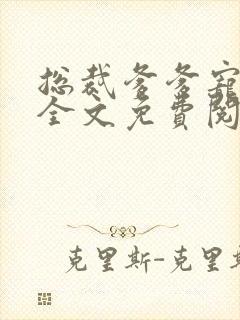 总裁爹爹宠
全文免費閱
克里斯-克里斯